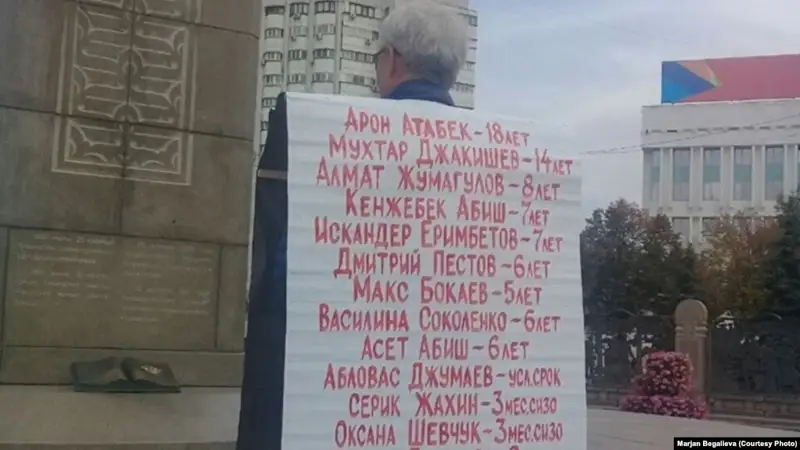 Арон Атабек-18лет
Мухтар Джакишев-14лет
Алмат Жумагулов-8лет
Кенжебек Абиш-7лет
Искандер Еримбетов-7лет
Дмитрий Пестов-6лет
Макс Бокаев-5лет
Василина Соколенко-6лет
Асет Абиш-6лет
Абловас Джумаев-усл.срок
Серик Жахин-3мес.сизо
Оксана Шевчук-3мес.сизо
Marjan Begalieva (Courtesy Photo)